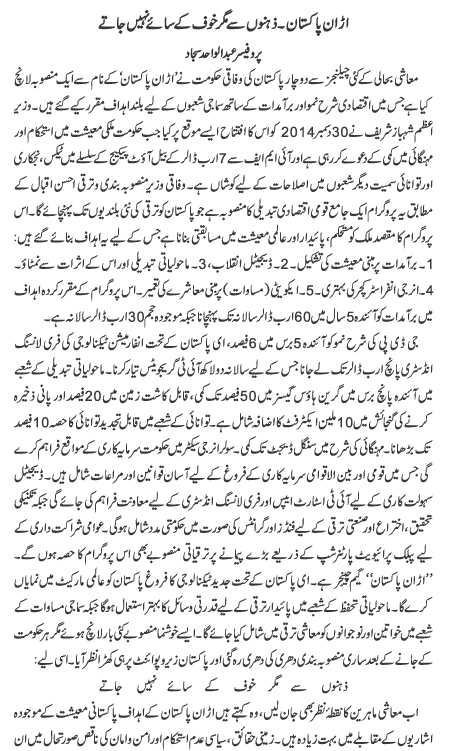 اڑان پاکستان۔ ذہنوں سے مگر خوف کے سائے نہیں جاتے
پروفیسر عبدالواحد سجاد
معاشی بحالی کے کئی چیلنجز سے دوچار پاکستان کی وفاقی حکومت نے ’اڑان پاکستان‘ کے نام سے ایک منصوبہ لانچ
کیا ہے جس میں اقتصادی شرح نمو اور برآمدات کے ساتھ سماجی شعبوں کے لیے بلند اہداف مقرر کیے گئے ہیں۔ وزیر
اعظم شہباز شریف نے 30 دسمبر 2014 کو اس کا افتتاح ایسے موقع پر کیا جب حکومت ملکی معیشت میں استحکام اور
مہنگائی میں کمی کے دعوے کر رہی ہے اور آئی ایم ایف سے 7 ارب ڈالر کے بیل آؤٹ پیکیج کے سلسلے میں ٹیکس، نجکاری
اور توانائی سمیت دیگر شعبوں میں اصلاحات کے لیے کوشاں ہے۔ وفاقی وزیر منصوبہ بندی و ترقی احسن اقبال کے
مطابق یہ پروگرام ایک جامع قومی اقتصادی تبدیلی کا منصوبہ ہے جو پاکستان کو ترقی کی نئی بلندیوں تک پہنچائے گا۔ اس
پروگرام کا مقصد ملک کو مستحکم، پائیدار اور عالمی معیشت میں مسابقتی بنانا ہے جس کے لیے یہ اہداف بنائے گئے ہیں:
1۔ برآمدات پر مبنی معیشت کی تشکیل۔ 2۔ ڈیجیٹل انقلاب، 3۔ ماحولیاتی تبدیلی اور اس کے اثرات سے نمٹاؤ۔
4۔ انرجی انفراسٹرکچر کی بہتری۔ 5۔ ایکویٹی (مساوات) پر مبنی معاشرے کی تعمیر۔ اس پروگرام کے مقرر کردہ اہداف
میں برآمدات کو آئندہ 5 سال میں 60 ارب ڈالر سالانہ تک پہنچانا جبکہ موجودہ حجم 30 ارب ڈالر سالانہ ہے۔
جی ڈی پی کی شرح نمو کو آئندہ 5 برس میں 6 فیصد، ای پاکستان کے تحت انفارمیشن ٹیکنالوجی کی فری لانسنگ
انڈسٹری پانچ ارب ڈالر تک لے جانا جس کے لیے سالانہ دو لاکھ آئی ٹی گریجویٹس تیار کرنا۔ ماحولیاتی تبدیلی کے شعبے
میں آئندہ پانچ برس میں گرین ہاؤس گیسز میں 50 فیصد تک کمی، قابل کاشت زمین میں 20 فیصد اور پانی ذخیرہ
کرنے کی گنجائش میں 10 ملین ایکڑ فٹ کا اضافہ شامل ہے۔ توانائی کے شعبے میں قابل تجدید توانائی کا حصہ 10 فیصد
تک بڑھانا۔ مہنگائی کی شرح میں سنگل ڈیجٹ تک کمی۔ سولر انرجی سیکٹر میں حکومت سرمایہ کاری کے مواقع فراہم کرے
گی جس میں قومی اور بین الاقوامی سرمایہ کاری کے فروغ کے لیے آسان قوانین اور مراعات شامل ہیں۔ ڈیجیٹل
سہولت کاری کے لیے آئی ٹی اسٹارٹ ایپس اور فری لانسنگ انڈسٹری کے لیے معاونت فراہم کی جائے گی جبکہ تکنیکی
تحقیق، اختراع اور صنعتی ترقی کے لیے فنڈز اور گرانٹس کی صورت میں حکومتی مدد شامل ہو گی۔ عوامی شراکت داری کے
لیے پبلک پرائیویٹ پارٹنرشپ کے ذریعے بڑے پیمانے پر ترقیاتی منصوبے بھی اس پروگرام کا حصہ ہوں گے۔
’’اڑان پاکستان‘‘ گیم چینجر ہے۔ ای پاکستان کے تحت جدید ٹیکنالوجی کا فروغ پاکستان کو عالمی مارکیٹ میں نمایاں
کرے گا۔ ماحولیاتی تحفظ کے شعبے میں پائیدار ترقی کے لیے قدرتی وسائل کا بہتر استعمال ہو گا جبکہ سماجی مساوات کے
شعبے میں خواتین اور نوجوانوں کو معاشی ترقی میں شامل کیا جائے گا۔ ایسے خوشنما منصوبے کئی بار لانچ ہوئے مگر ہر حکومت
کے جانے کے بعد ساری منصوبہ بندی دھری کی دھری رہ گئی اور پاکستان زیرو پوائنٹ پر ہی کھڑا نظر آیا۔ اسی لیے:
ذہنوں سے مگر خوف کے سائے نہیں جاتے
اب معاشی ماہرین کا نقطۂ نظر بھی جان لیں، وہ کہتے ہیں اڑان پاکستان کے اہداف پاکستانی معیشت کے موجودہ
اشاریوں کے مقابلے میں بہت زیادہ ہیں۔ زمینی حقائق، سیاسی عدم استحکام اور امن و امان کی ناقص صورتحال میں ان